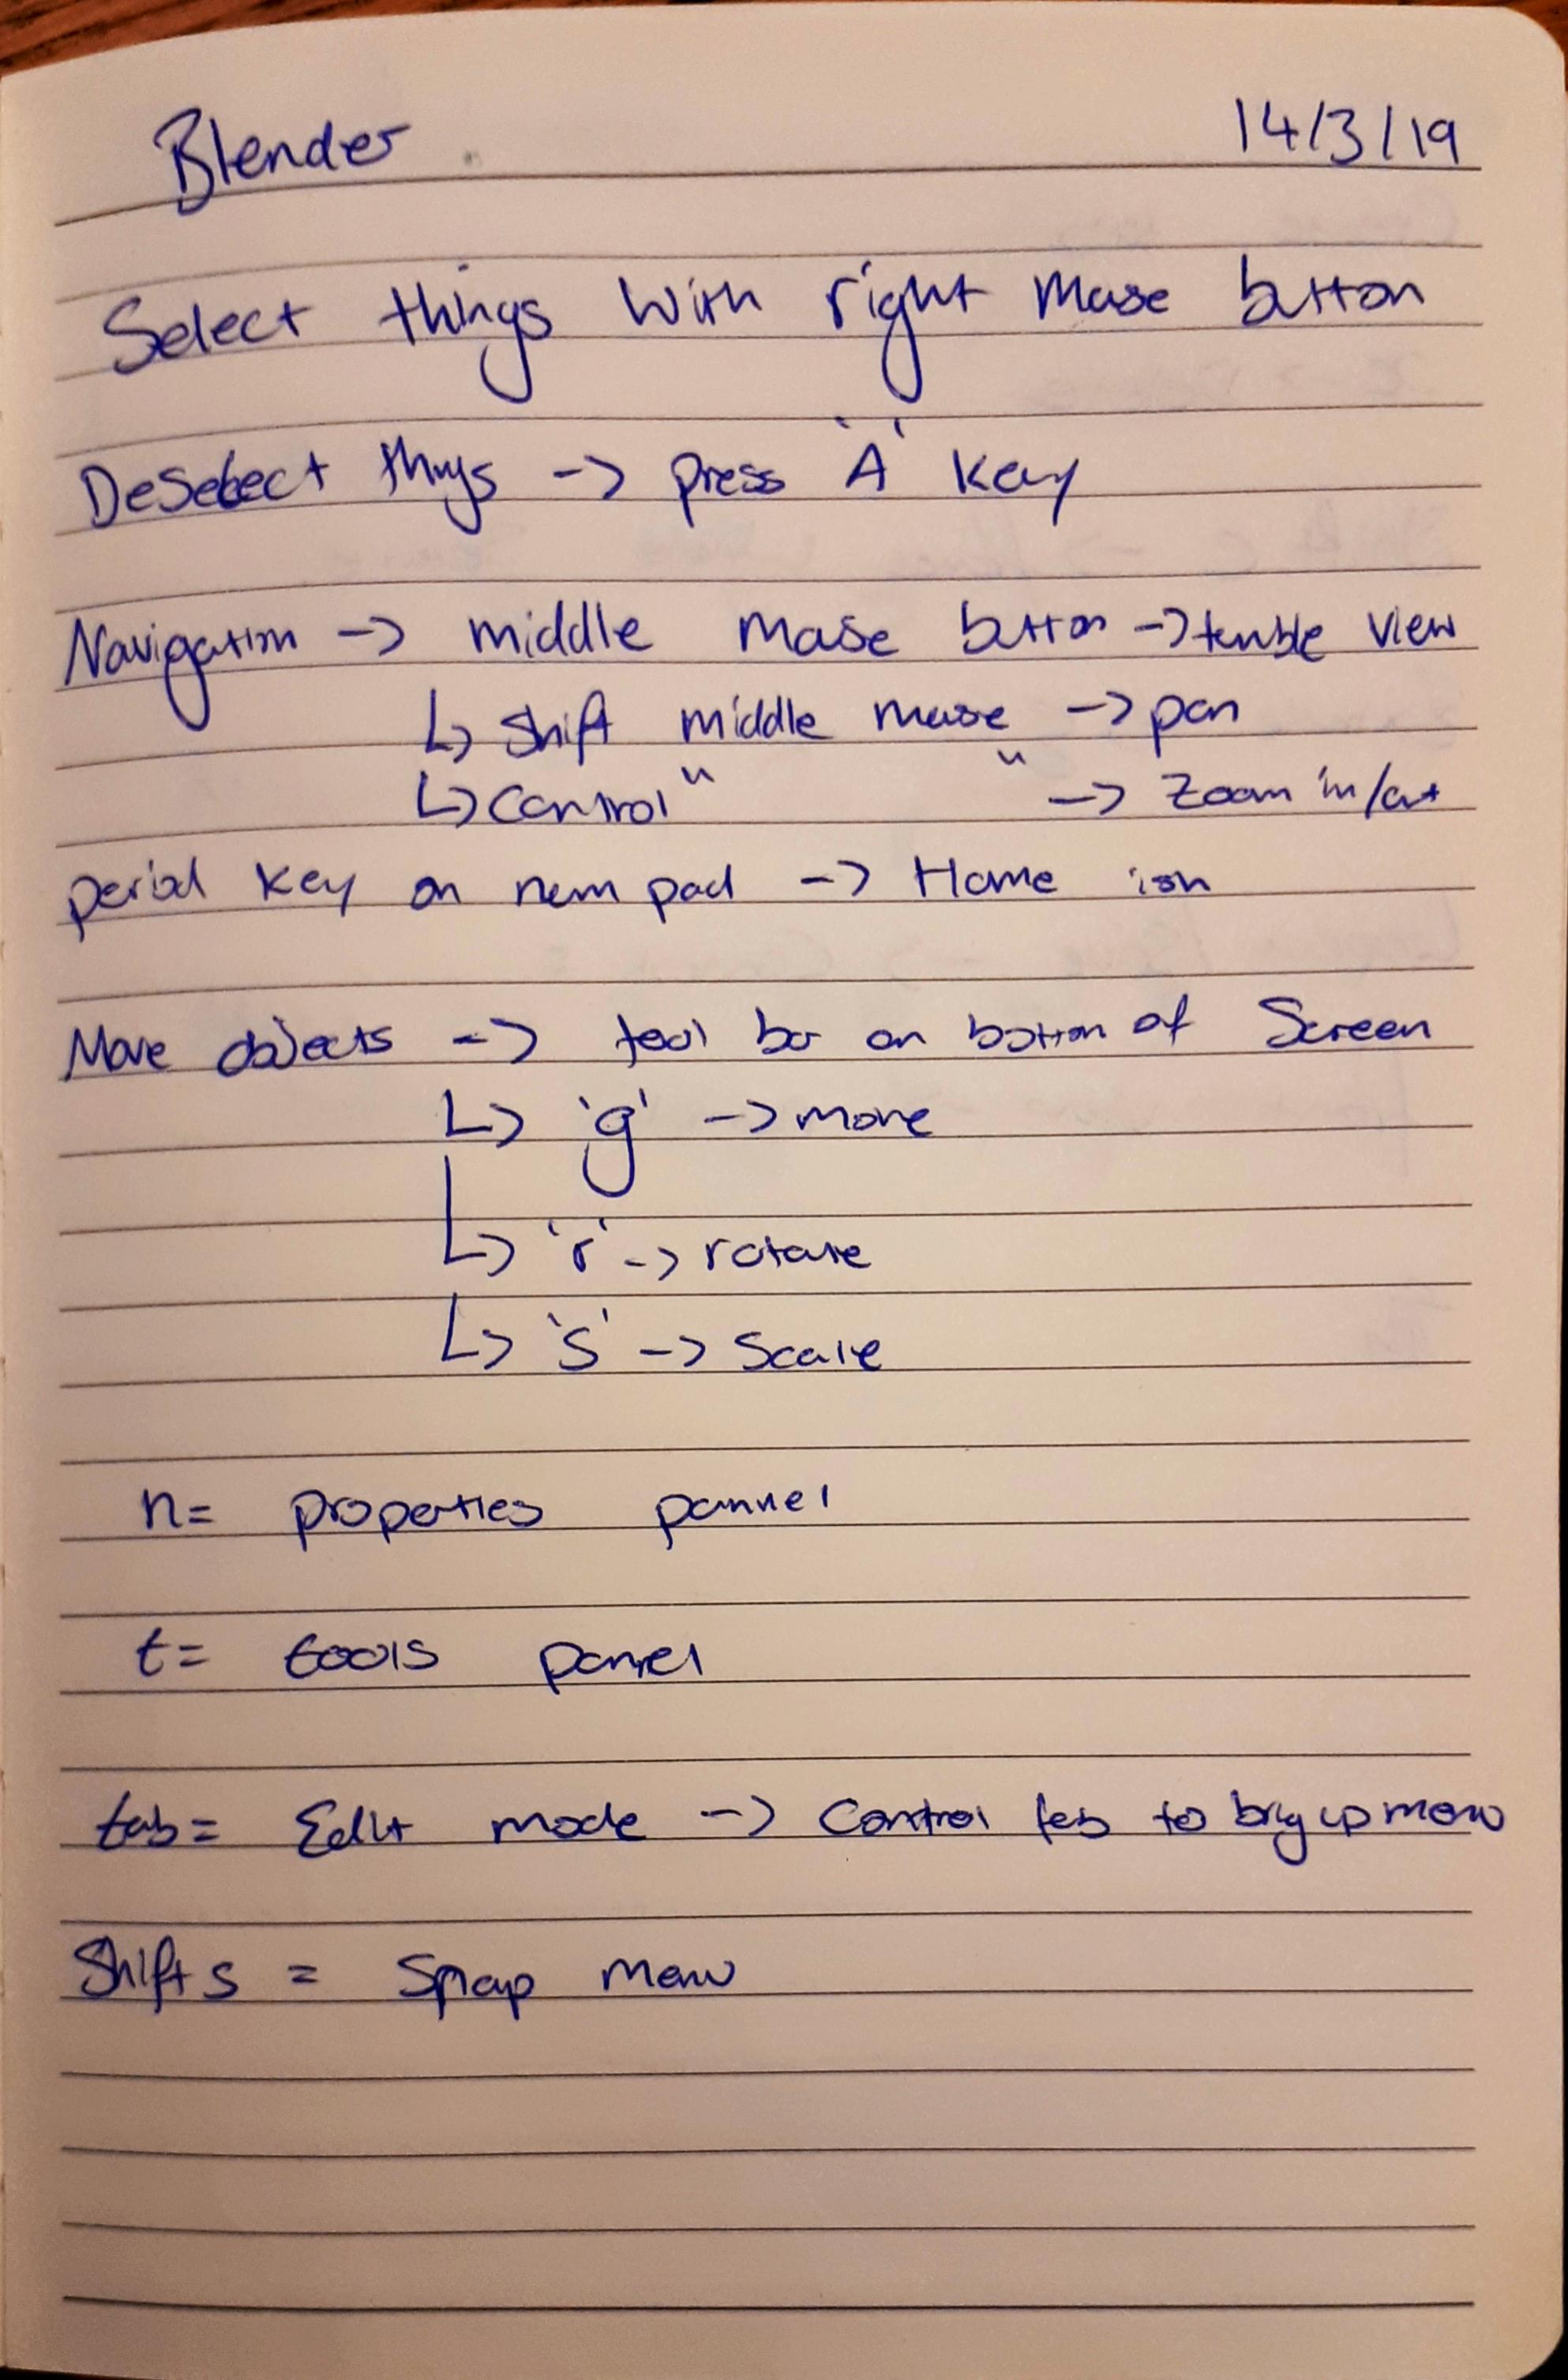 Blender 14/3/19
Select things with right mouse button
Deselect things -> press 'A' key
Navigation -> middle mouse button -> tumble view
↳ shift middle mouse -> pan
↳ control " " -> zoom in/out
period key on num pad -> Home
Move objects -> tool bar on bottom of screen
↳ 'g' -> move
↳ 'r' -> rotate
↳ 'S' -> Scale
n= properties pannel
t= tools pannel
tab= Edit mode -> control tab to bring up menu
Shift s = Snap menu